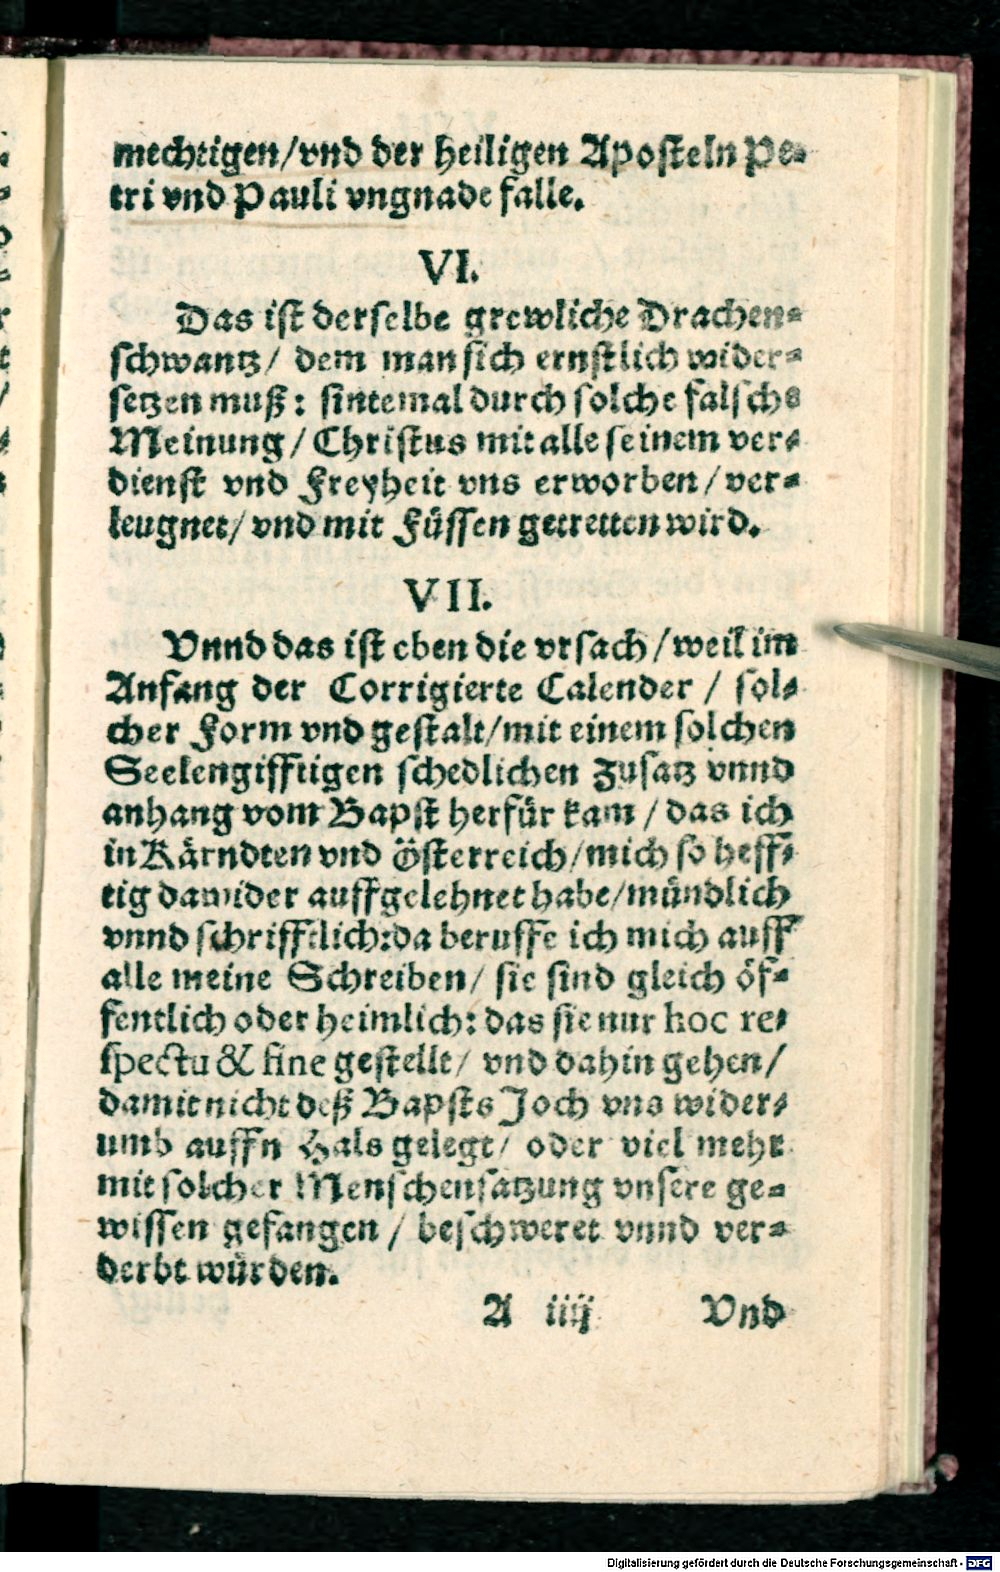 mechtigen/vnd der heiligen Aposteln Pe-
tri vnd Pauli vngnade falle.
VI.
Das ist derselbe grewliche Drachen-
schwantz/ dem man sich ernstlich wider-
setzen muß: sintemal durch solche falsche
Meinung/ Christus mit alle seinem ver-
dienst vnd Freyheit vns erworben/ ver-
leugnet/ vnd mit Füssen getretten wird.
VII.
Vnnd das ist eben die vrsach/ weil im
Anfang der Corrigierte Calender/ sol-
cher Form vnd gestalt/mit einem solchen
Seelengifftigen schedlichen Zusatz vnnd
anhang vom Bapst herfür kam/ das ich
in Kärndten vnd Österreich/mich so heff-
tig damider auffgelehnet habe/mündlich
vnnd schrifftlich:da beruffe ich mich auff
alle meine Schreiben/ sie sind gleich öf-
fentlich oder heimlich: das sie nur hoc re-
spectu & fine gestellt/ vnd dahin gehen/
damit nicht deß Bapsts Joch vns wider-
umb auffn Hals gelegt/ oder viel mehr
mit solcher Menschensatzung vnsere ge-
wissen gefangen/ beschweret vnnd ver-
derbt würden.
A iiij Vnd
Digitalisierung gefördert durch die Deutsche Forschungsgemeinschaft - DFG